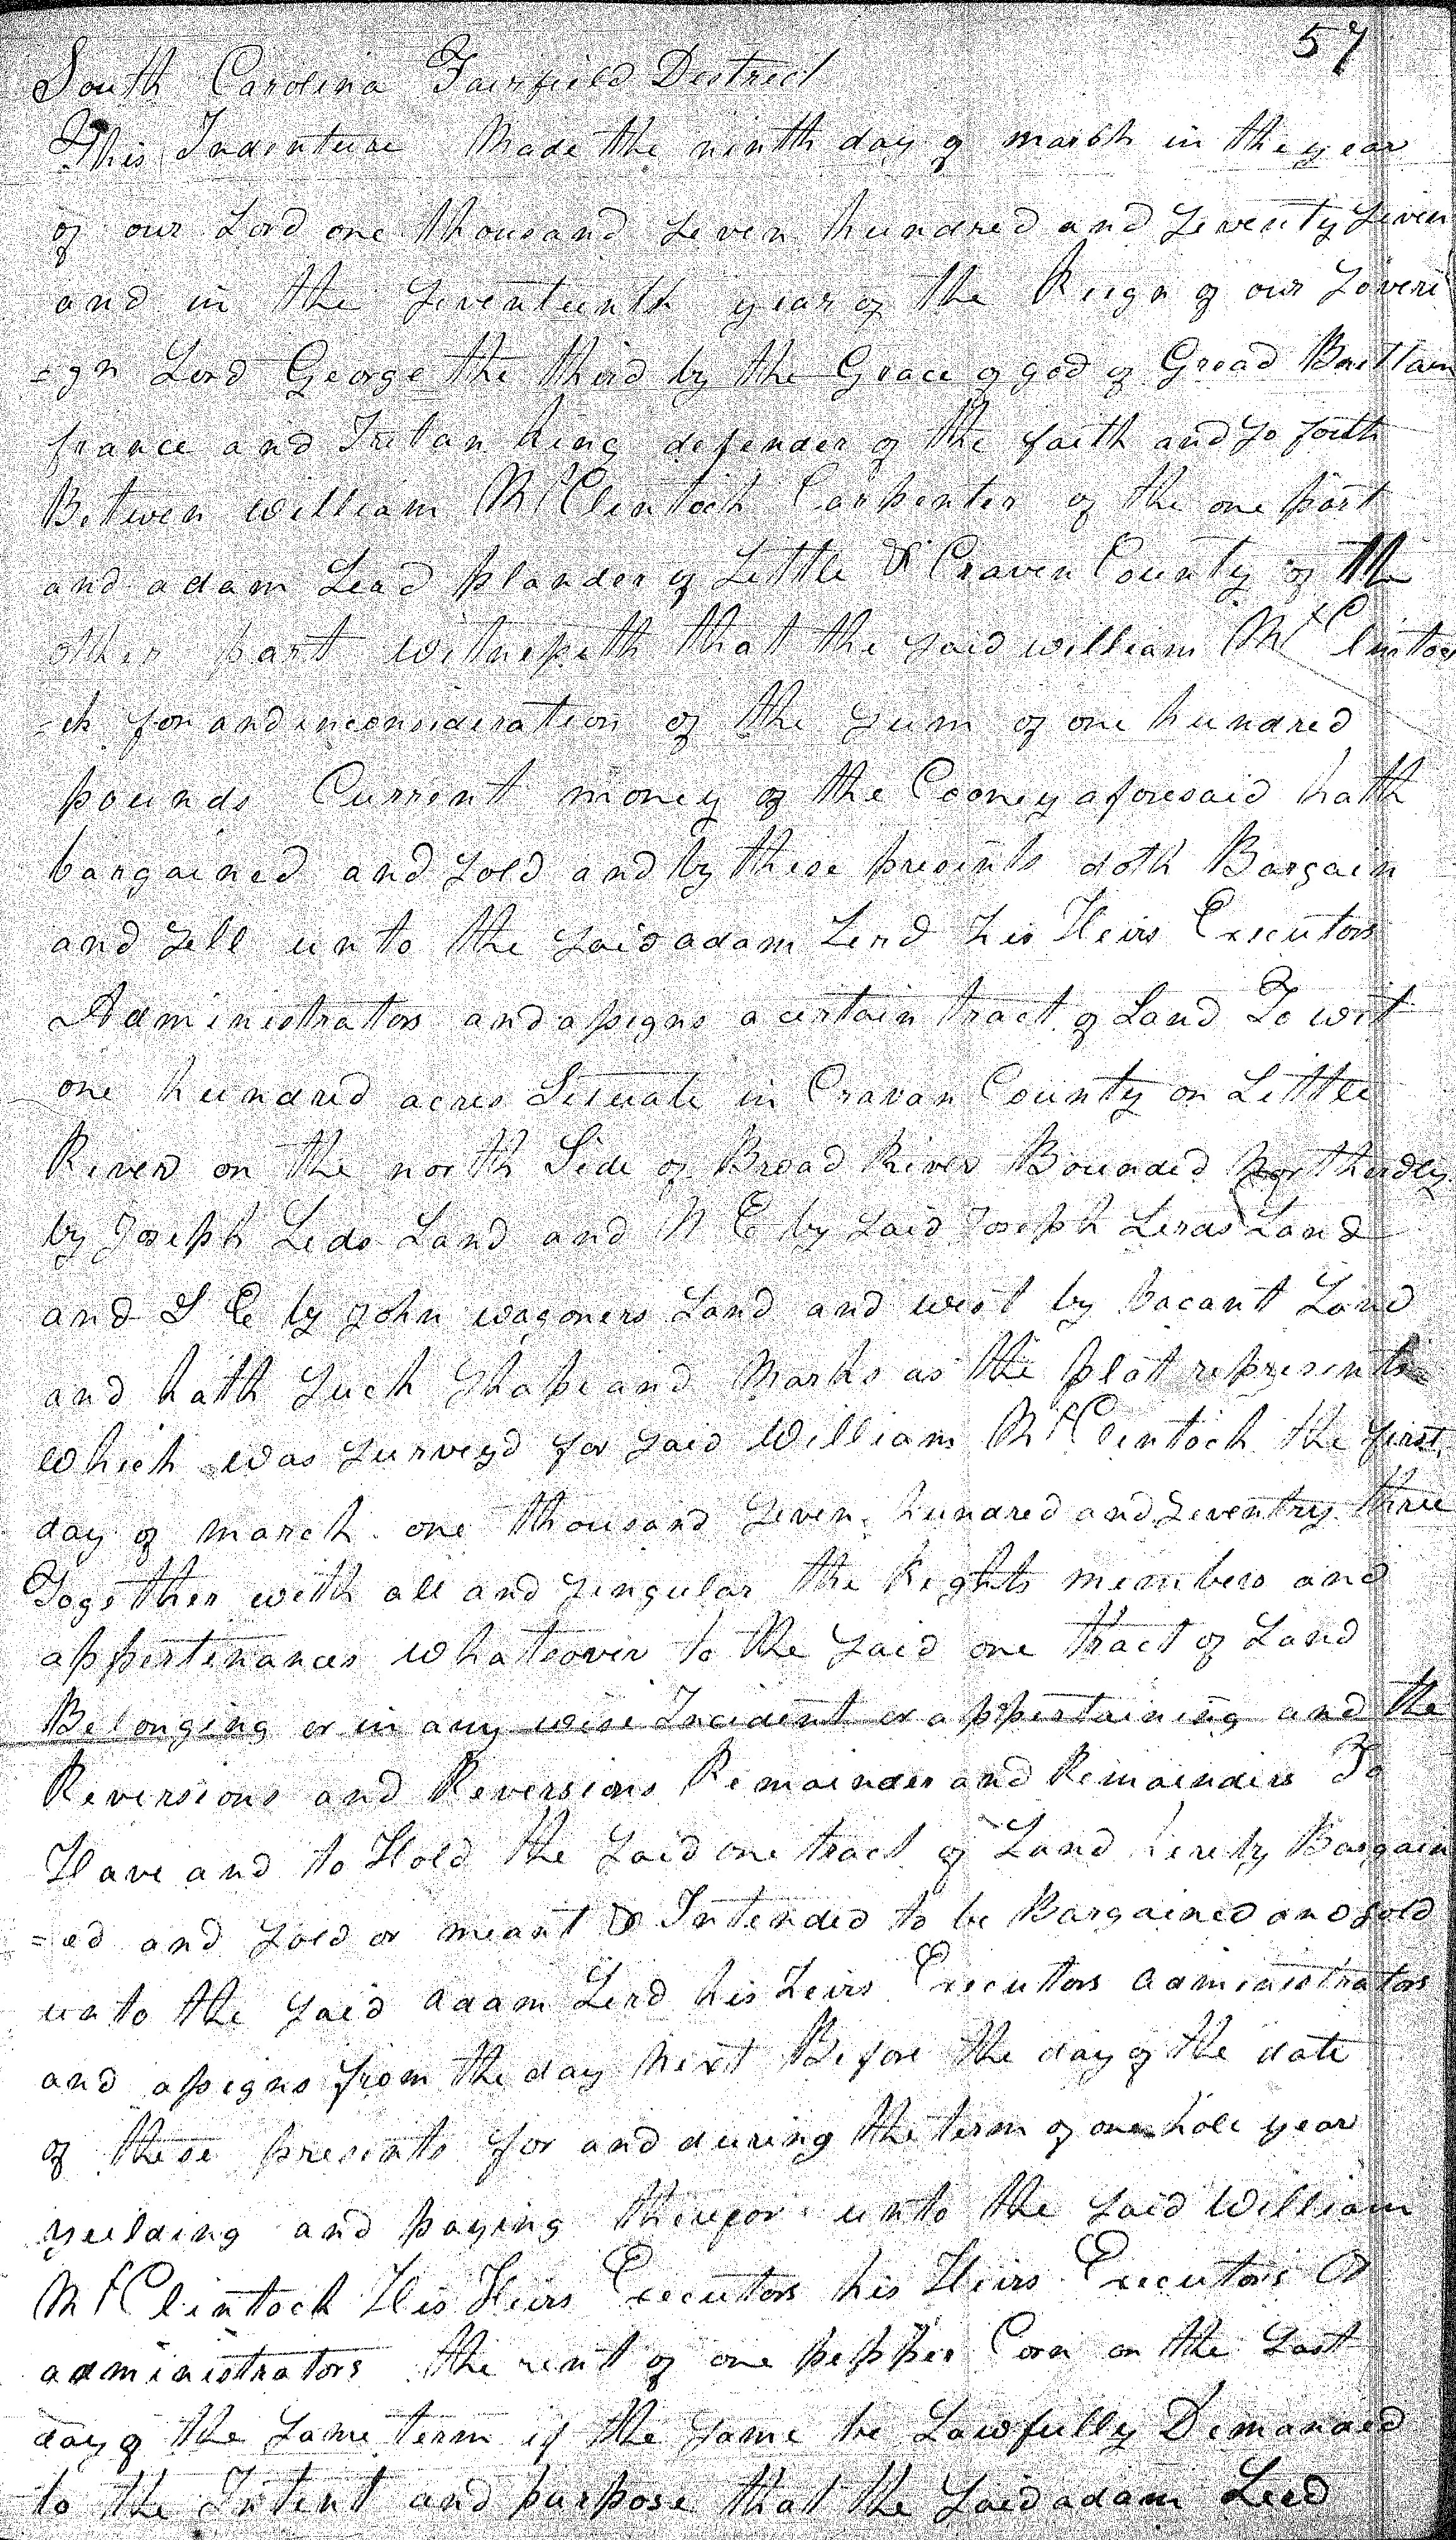 57
South Carolina Fairfield District
This Indenture Made the ninth day of march in the year
of our Lord one thousand Seven hundred and Seventy Seven
and in the Seventeenth year of the Reign of our Soveri
=gn Lord George the third by the Grace of god of Gread Brittain
france and Irelan king defender of the faith and so forth
Betwen william McClintock Carpenter of the one part
and adam Lerd plander of Little R Craven County of the
other part witnesseth that the said william McClintoc
=ck for and inconsideration of the Sum of one hundred
pounds Current money of the Cooney aforesaid hath
bargained and Sold and by these presents doth Bargain
and Sell unto the said adam Lerd his Heirs Executors
Administrators and assigns a certain tract of Land To wit
one hundred acres Situate in Cravan County on Little
River on the north Side of Broad River Bounded northerdly
by Joseph Leds Land and N E by said Joseph Lerds Land
and S E by John wagoners Land and west by vacant Land
and hath Such Shape and Marks as the plat represents
which was Surveyd for said William McClintock the first
day of march one thousand Seven hundred and Seventry three
Together with all and Singular the Rights members and
appertenances whatsover to the said one tract of Land
Belonging or in any wise Incident or appertaining and the
Reversions and Reversions Remainder and Remainders To
Have and to Hold the Said one tract of Land hereby Bargain
=ed and Sold or meant & Intended to be Bargained and sold
unto the said adam Lerd his heirs Executors administrators
and assigns from the day next Before the day of the date
of these presents for and during the term of one hole year
yeilding and paying therefor unto the said William
McClintock His Heirs Executors his Heirs Executors Or
administrators the rent of one pepper Corn on the Last
day of the Same term if the same be Lawfully Demanded
to the Intent and purpose that the said adam Lerd